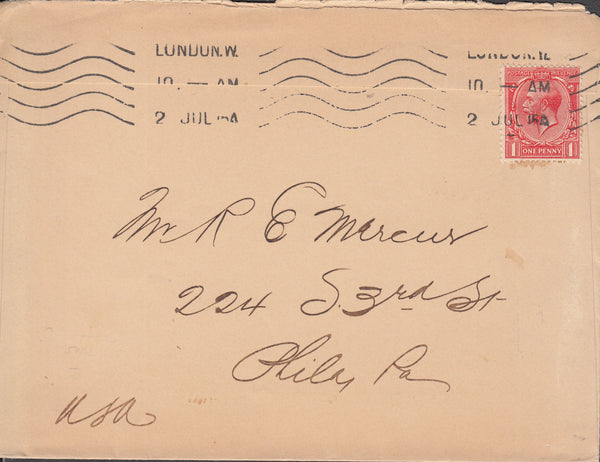 LONDON.W.
10 — AM
2 JUL 15A
LONDON.W.
10 — AM
2 JUL 15A
POSTAGE REVENUE
1 ONE PENNY 1
Mr R E Mercur
224 S. 3rd St
Phila, Pa
USA